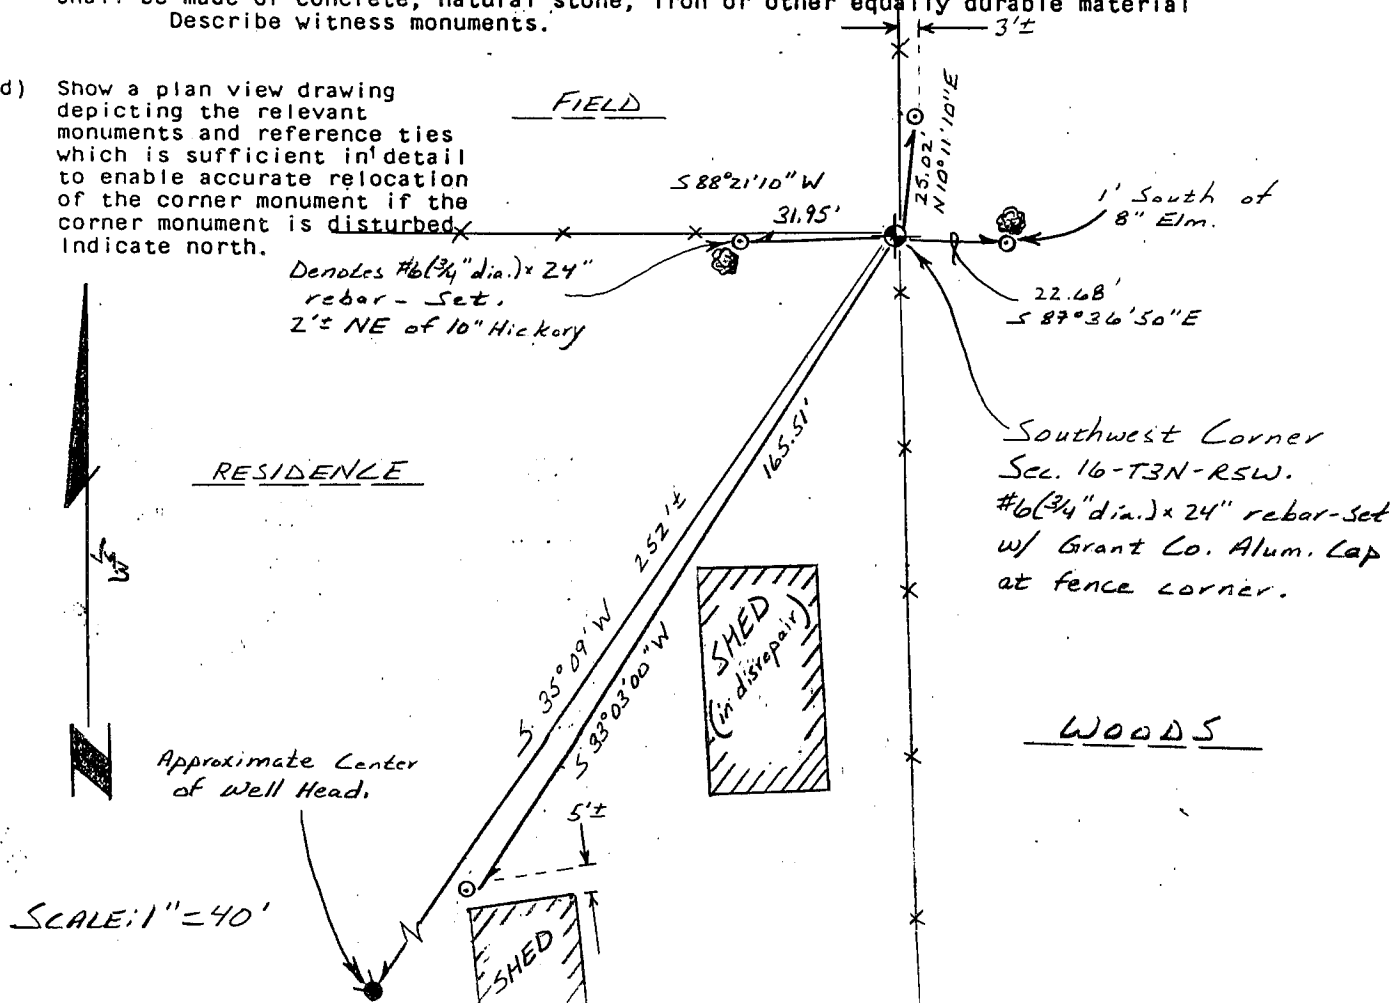 shall be made of concrete, natural stone, iron or other equally durable material
Describe witness monuments.
3'±
d) Show a plan view drawing
depicting the relevant
monuments and reference ties
which is sufficient in detail
to enable accurate relocation
of the corner monument if the
corner monument is disturbed
Indicate north.
FIELD
25.02'
N 10°11'10"E
S 88°21'10" W
31.95'
1' South of
8" Elm.
Denotes #6(3/4"dia.)x 24"
rebar - Set.
2'± NE of 10" Hickory
22.68'
S 87°36'50"E
Southwest Corner
Sec. 16-T3N-R5W.
#6(3/4"dia.)x 24" rebar-set
w/ Grant Co. Alum. Cap
at fence corner.
RESIDENCE
252'±
S 35°09' W
165.51'
S 33°03'00" W
SHED
(in disrepair)
WOODS
Approximate Center
of Well Head.
5'±
SCALE: 1"=40'
SHED